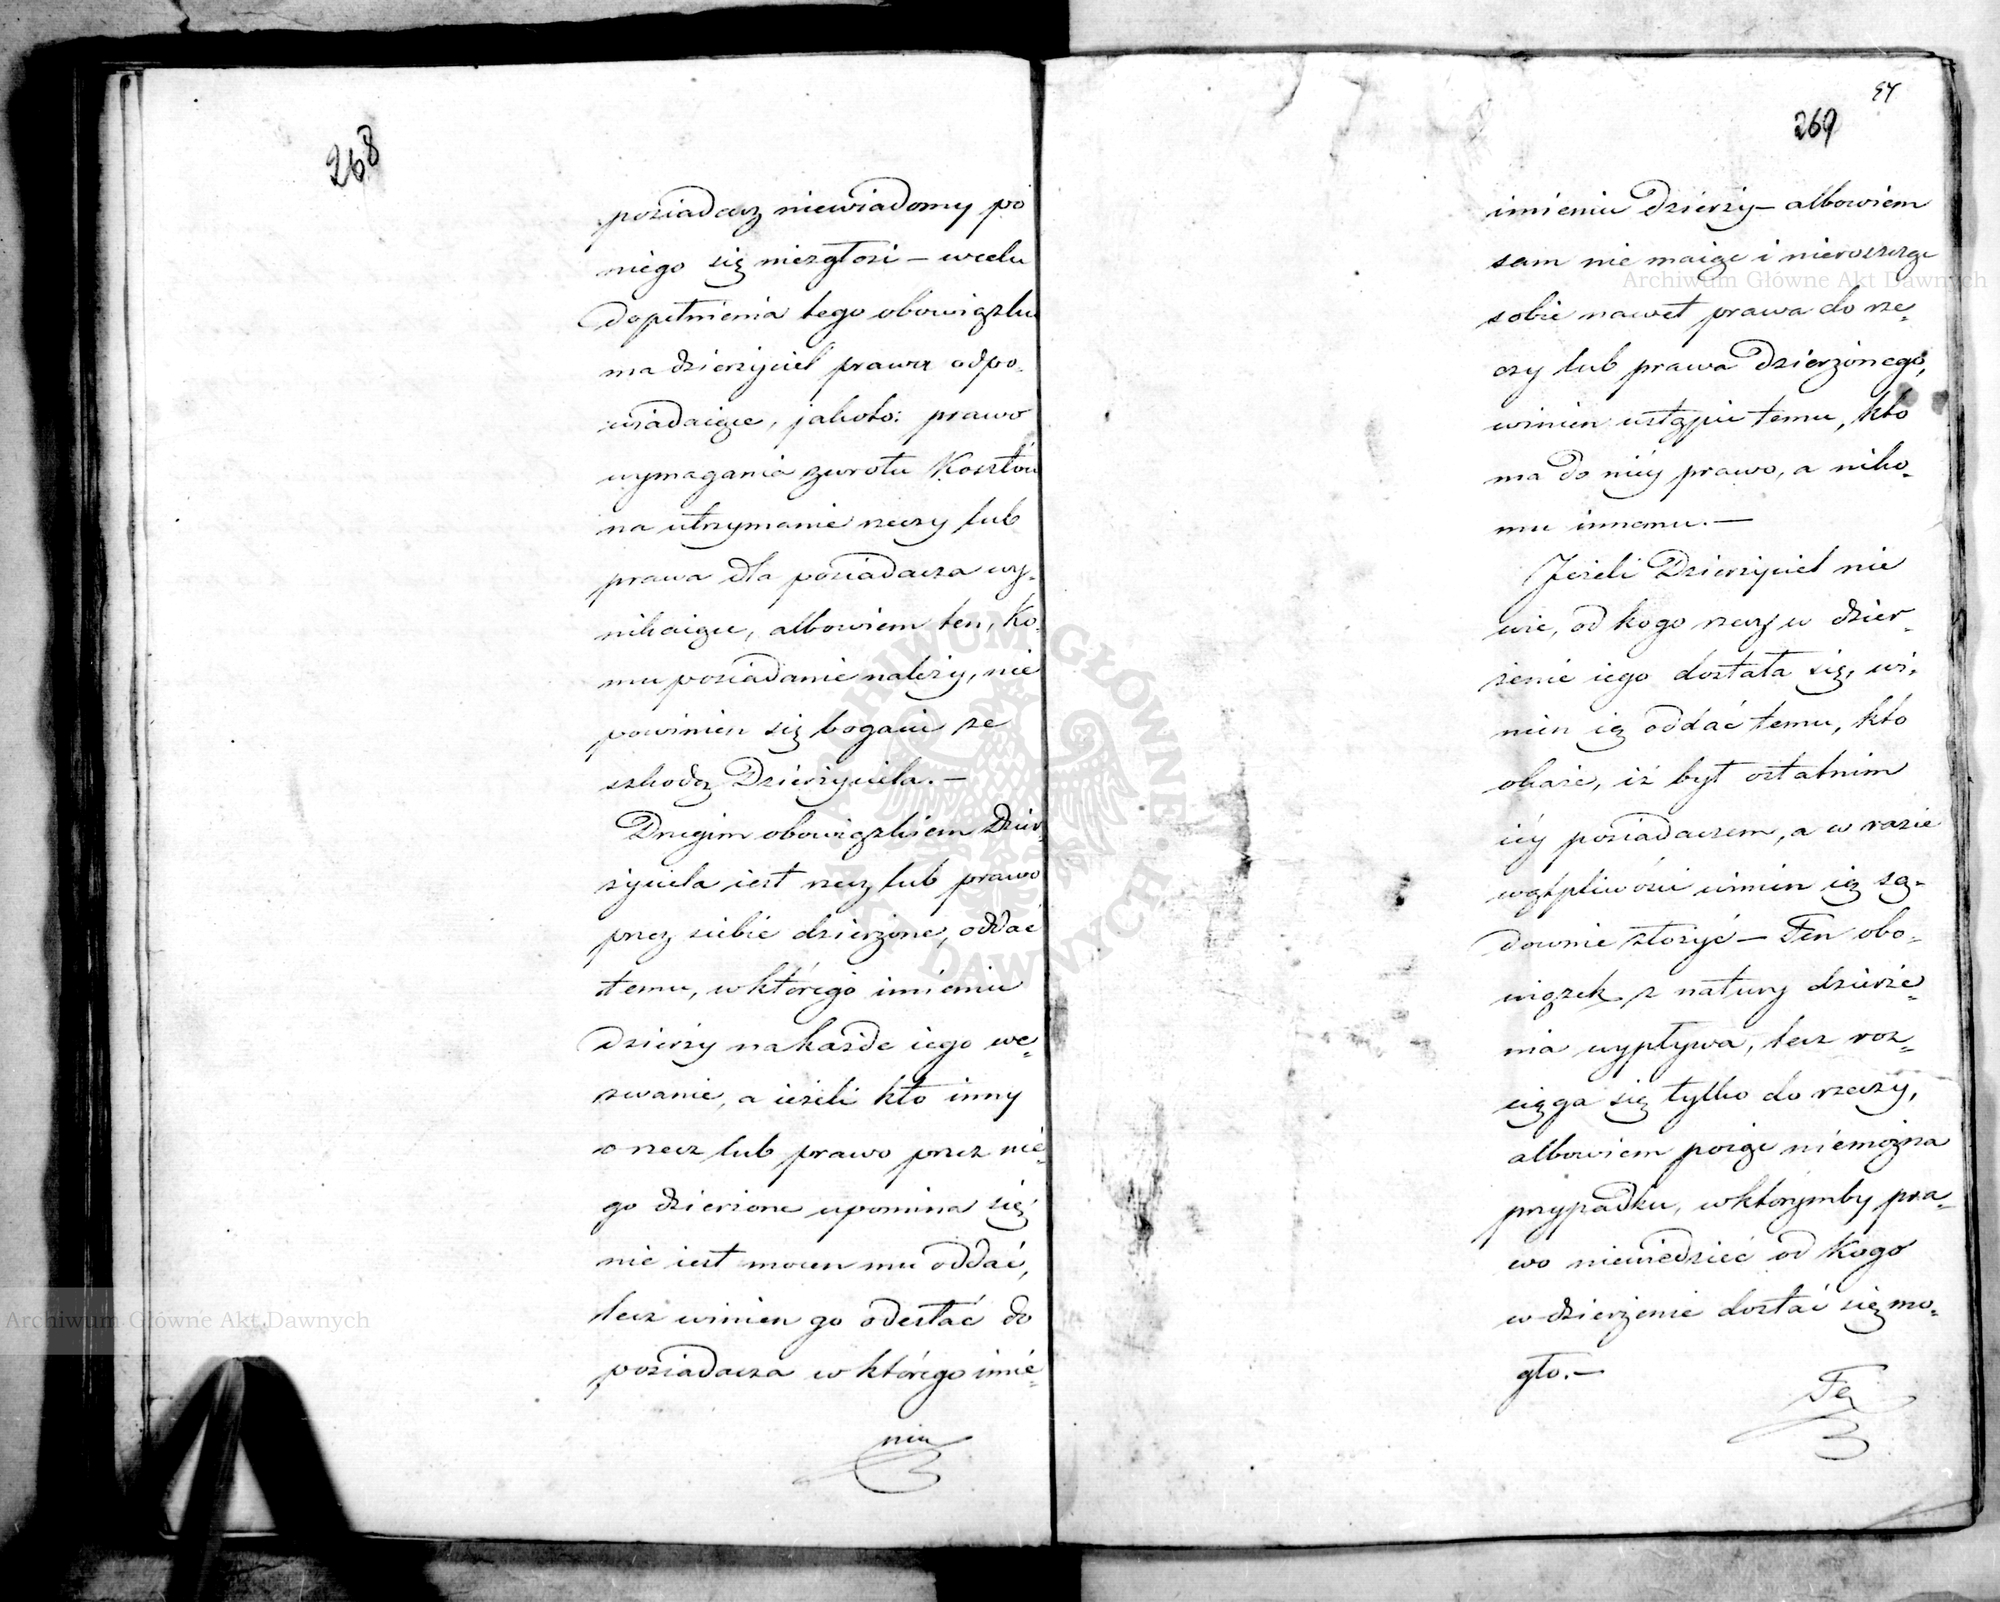 268
posiadacz niewiadomy po
niego się niezgłosi – wcelu
dopełnienia tego obowiązku
ma dzierżyciel prawa odpo-
wiadaiące, jakoto: prawo
wymagania zwrotu Kosztów
na utrzymanie rzeczy lub
prawa dla posiadacza wy-
nikaiące, albowiem ten, ko-
mu posiadanie należy, nie
powinien się bogacić ze
szkodą Dzierżyciela. –
Drugim obowiązkiem Dzier-
życiela iest rzecz lub prawo
przez siebie dzierżone, oddać
temu, w którego imieniu
dzierży na każde iego we-
zwanie, a ieżeli kto inny
o rzecz lub prawo przez nie-
go dzierżone upomina się
nie iest mocen mu oddać,
lecz winien go odesłać do
posiadacza w którego imie-
niu
94
269
imieniu dzierży – albowiem
sam nie maiąc i nieroszcząc
sobie nawet prawa do rze-
czy lub prawa dzierżonego,
winien ustąpić temu, kto
ma do niéy prawo, a niko-
mu innemu. –
Jeżeli Dzierżyciel nie
wie, od kogo rzecz w dzier-
żenie iego dostała się, wi-
nien ią oddać temu, kto
okaże, iż był ostatnim
iéy posiadaczem, a w razie
wątpliwości winien ią są-
downie złożyć – Ten obo-
wiązek z natury dzierże-
nia wypływa, lecz roz-
ciąga się tylko do rzeczy,
albowiem poiąć niemożna
przypadku, w którymby pra-
wo niewiedzieć od Kogo
w dzierżenie dostać się mo-
gło. –
Te
Archiwum Główne Akt Dawnych
Archiwum Główne Akt Dawnych
ARCHIWUM GŁÓWNE AKT DAWNYCH